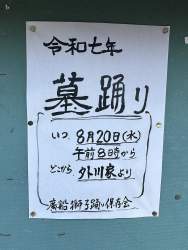 令和七年
墓踊り
いつ 8月20日(水)
午前8時から
どこから 外川家より
獅子踊り保存会